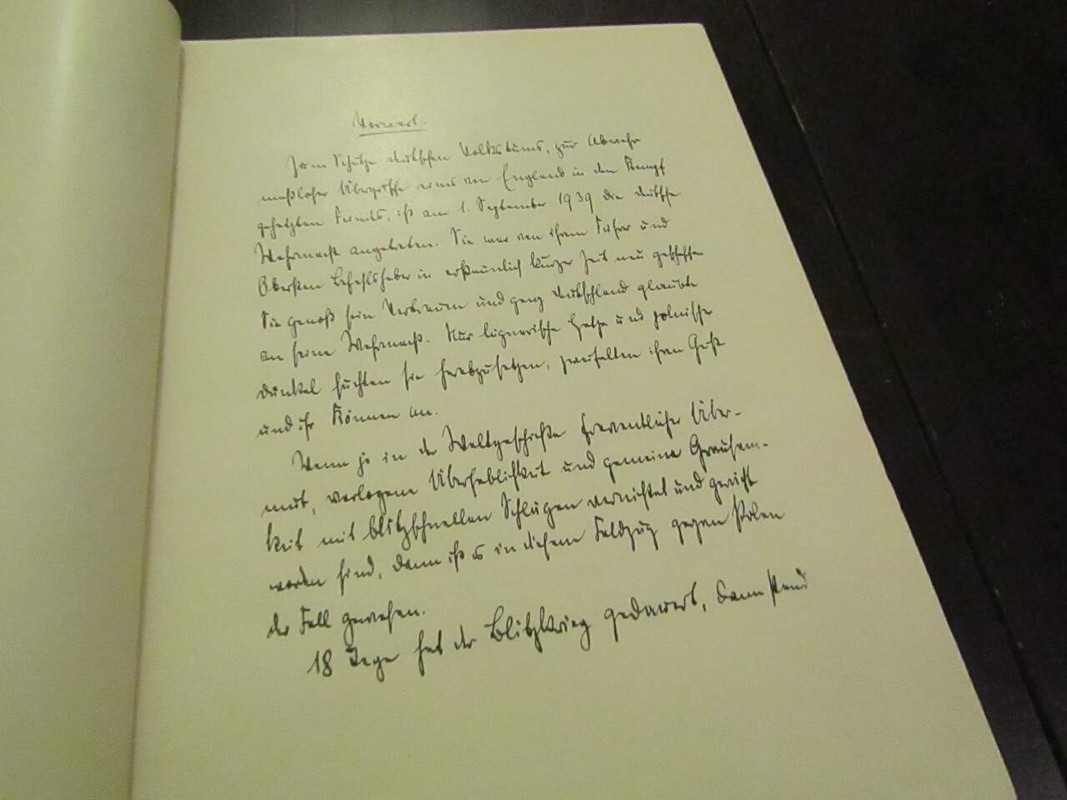 Vorwort.
Zum Schutze deutschen Volkstums, zur Abwehr
maßloser Übergriffe eines von England in den Kampf
gehetzten Feindes, ist am 1. September 1939 die deutsche
Wehrmacht angetreten. Sie war von ihrem Führer und
Obersten Befehlshaber in erstaunlich kurzer Zeit neu geschaffen
Sie genoß sein Vertrauen und ganz Deutschland glaubte
an seine Wehrmacht. Nur lügnerische Hetze und polnischer
Dünkel suchten sie herabzusetzen, zweifelten ihren Geist
und ihr Können an.
Wenn je in der Weltgeschichte frevelhafter Über-
mut, verlogene Überheblichkeit und gemeine Grausam-
keit mit blitzschnellen Schlägen vernichtet und gerächt
worden sind, dann ist es in diesem Feldzug gegen Polen
der Fall gewesen.
18 Tage hat der Blitzkrieg gedauert, dann stand